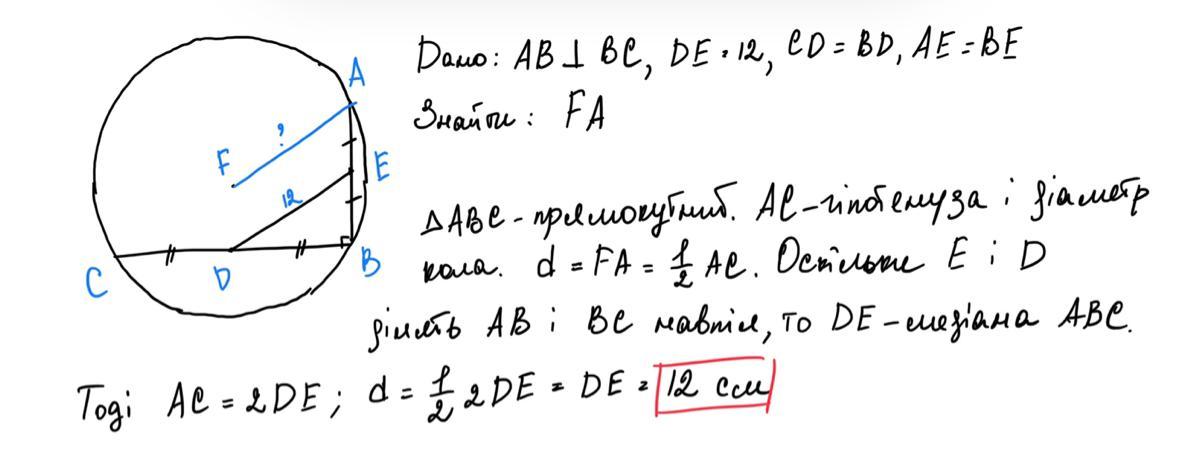 Дано: AB ⊥ BC, DE = 12, CD = BD, AE = BE
Знайти: FA
A
?
F
E
12
C
D
B
ΔABC - прямокутний. AC - гіпотенуза і діаметр
кола. d = FA = 1/2 AC. Оскільки E і D
ділять AB і BC навпіл, то DE - медіана ABC.
Тоді AC = 2DE; d = 1/2 2DE = DE = 12 см